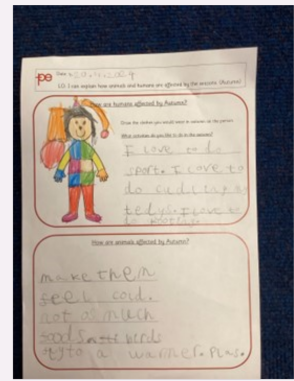 pe
Date
LO: I can explain how animals and humans are affected by the seasons (Autumn)
How are humans affected by Autumn?
Draw the clothes you would need in autumn on the person.
What activities do you like to do in the autumn?
I love to do
sport. I love to
do
tedys. I love to
do
How are animals affected by Autumn?
make them
feel cold.
not as much
food
to a warmer. plas.